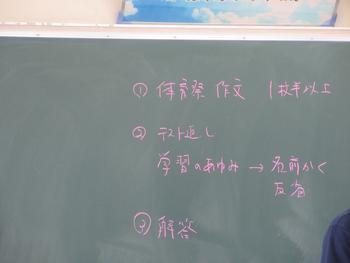 ① 体育祭 作文 1枚半以上
② テスト返し
学習のあゆみ → 名前かく
反省
③ 解答